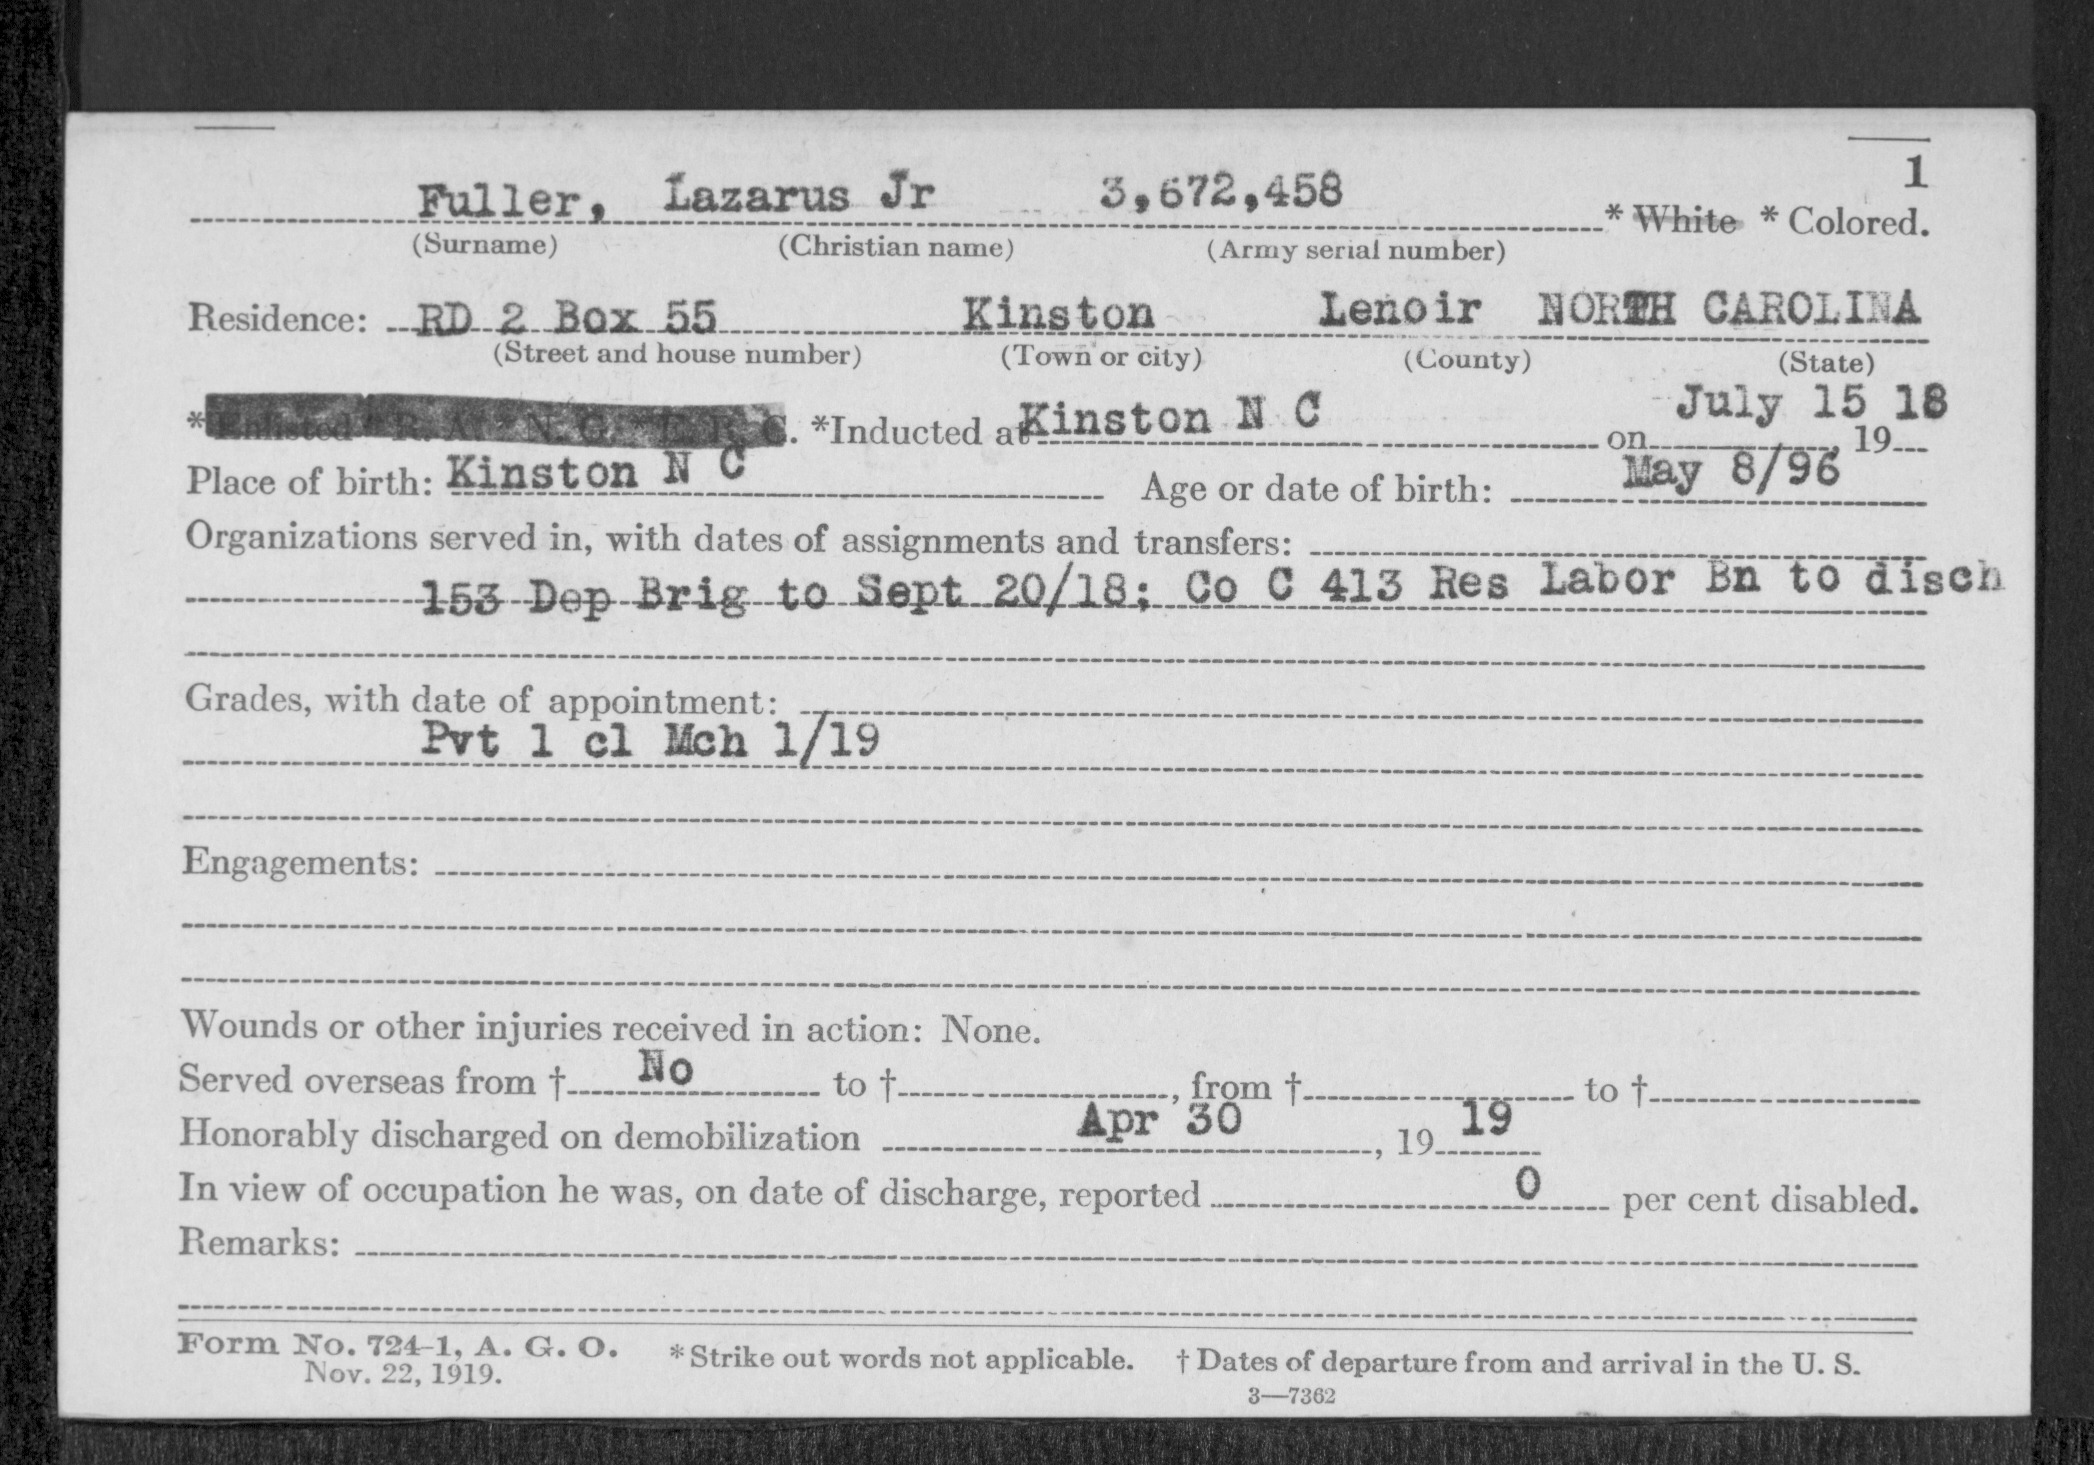 1
Fuller, Lazarus Jr 3,672,458 * White * Colored.
(Surname) (Christian name) (Army serial number)
Residence: RD 2 Box 55 Kinston Lenoir NORTH CAROLINA
(Street and house number) (Town or city) (County) (State)
*Enlisted * R. A. * N. G. * E. R. C. *Inducted at Kinston N C on July 15, 19 18
Place of birth: Kinston N C Age or date of birth: May 8/96
Organizations served in, with dates of assignments and transfers:
153 Dep Brig to Sept 20/18; Co C 413 Res Labor Bn to disch
Grades, with date of appointment:
Pvt 1 cl Mch 1/19
Engagements:
Wounds or other injuries received in action: None.
Served overseas from † No to †, from † to †
Honorably discharged on demobilization Apr 30, 19 19
In view of occupation he was, on date of discharge, reported 0 per cent disabled.
Remarks:
Form No. 724-1, A. G. O. * Strike out words not applicable. † Dates of departure from and arrival in the U. S.
Nov. 22, 1919.
3—7362